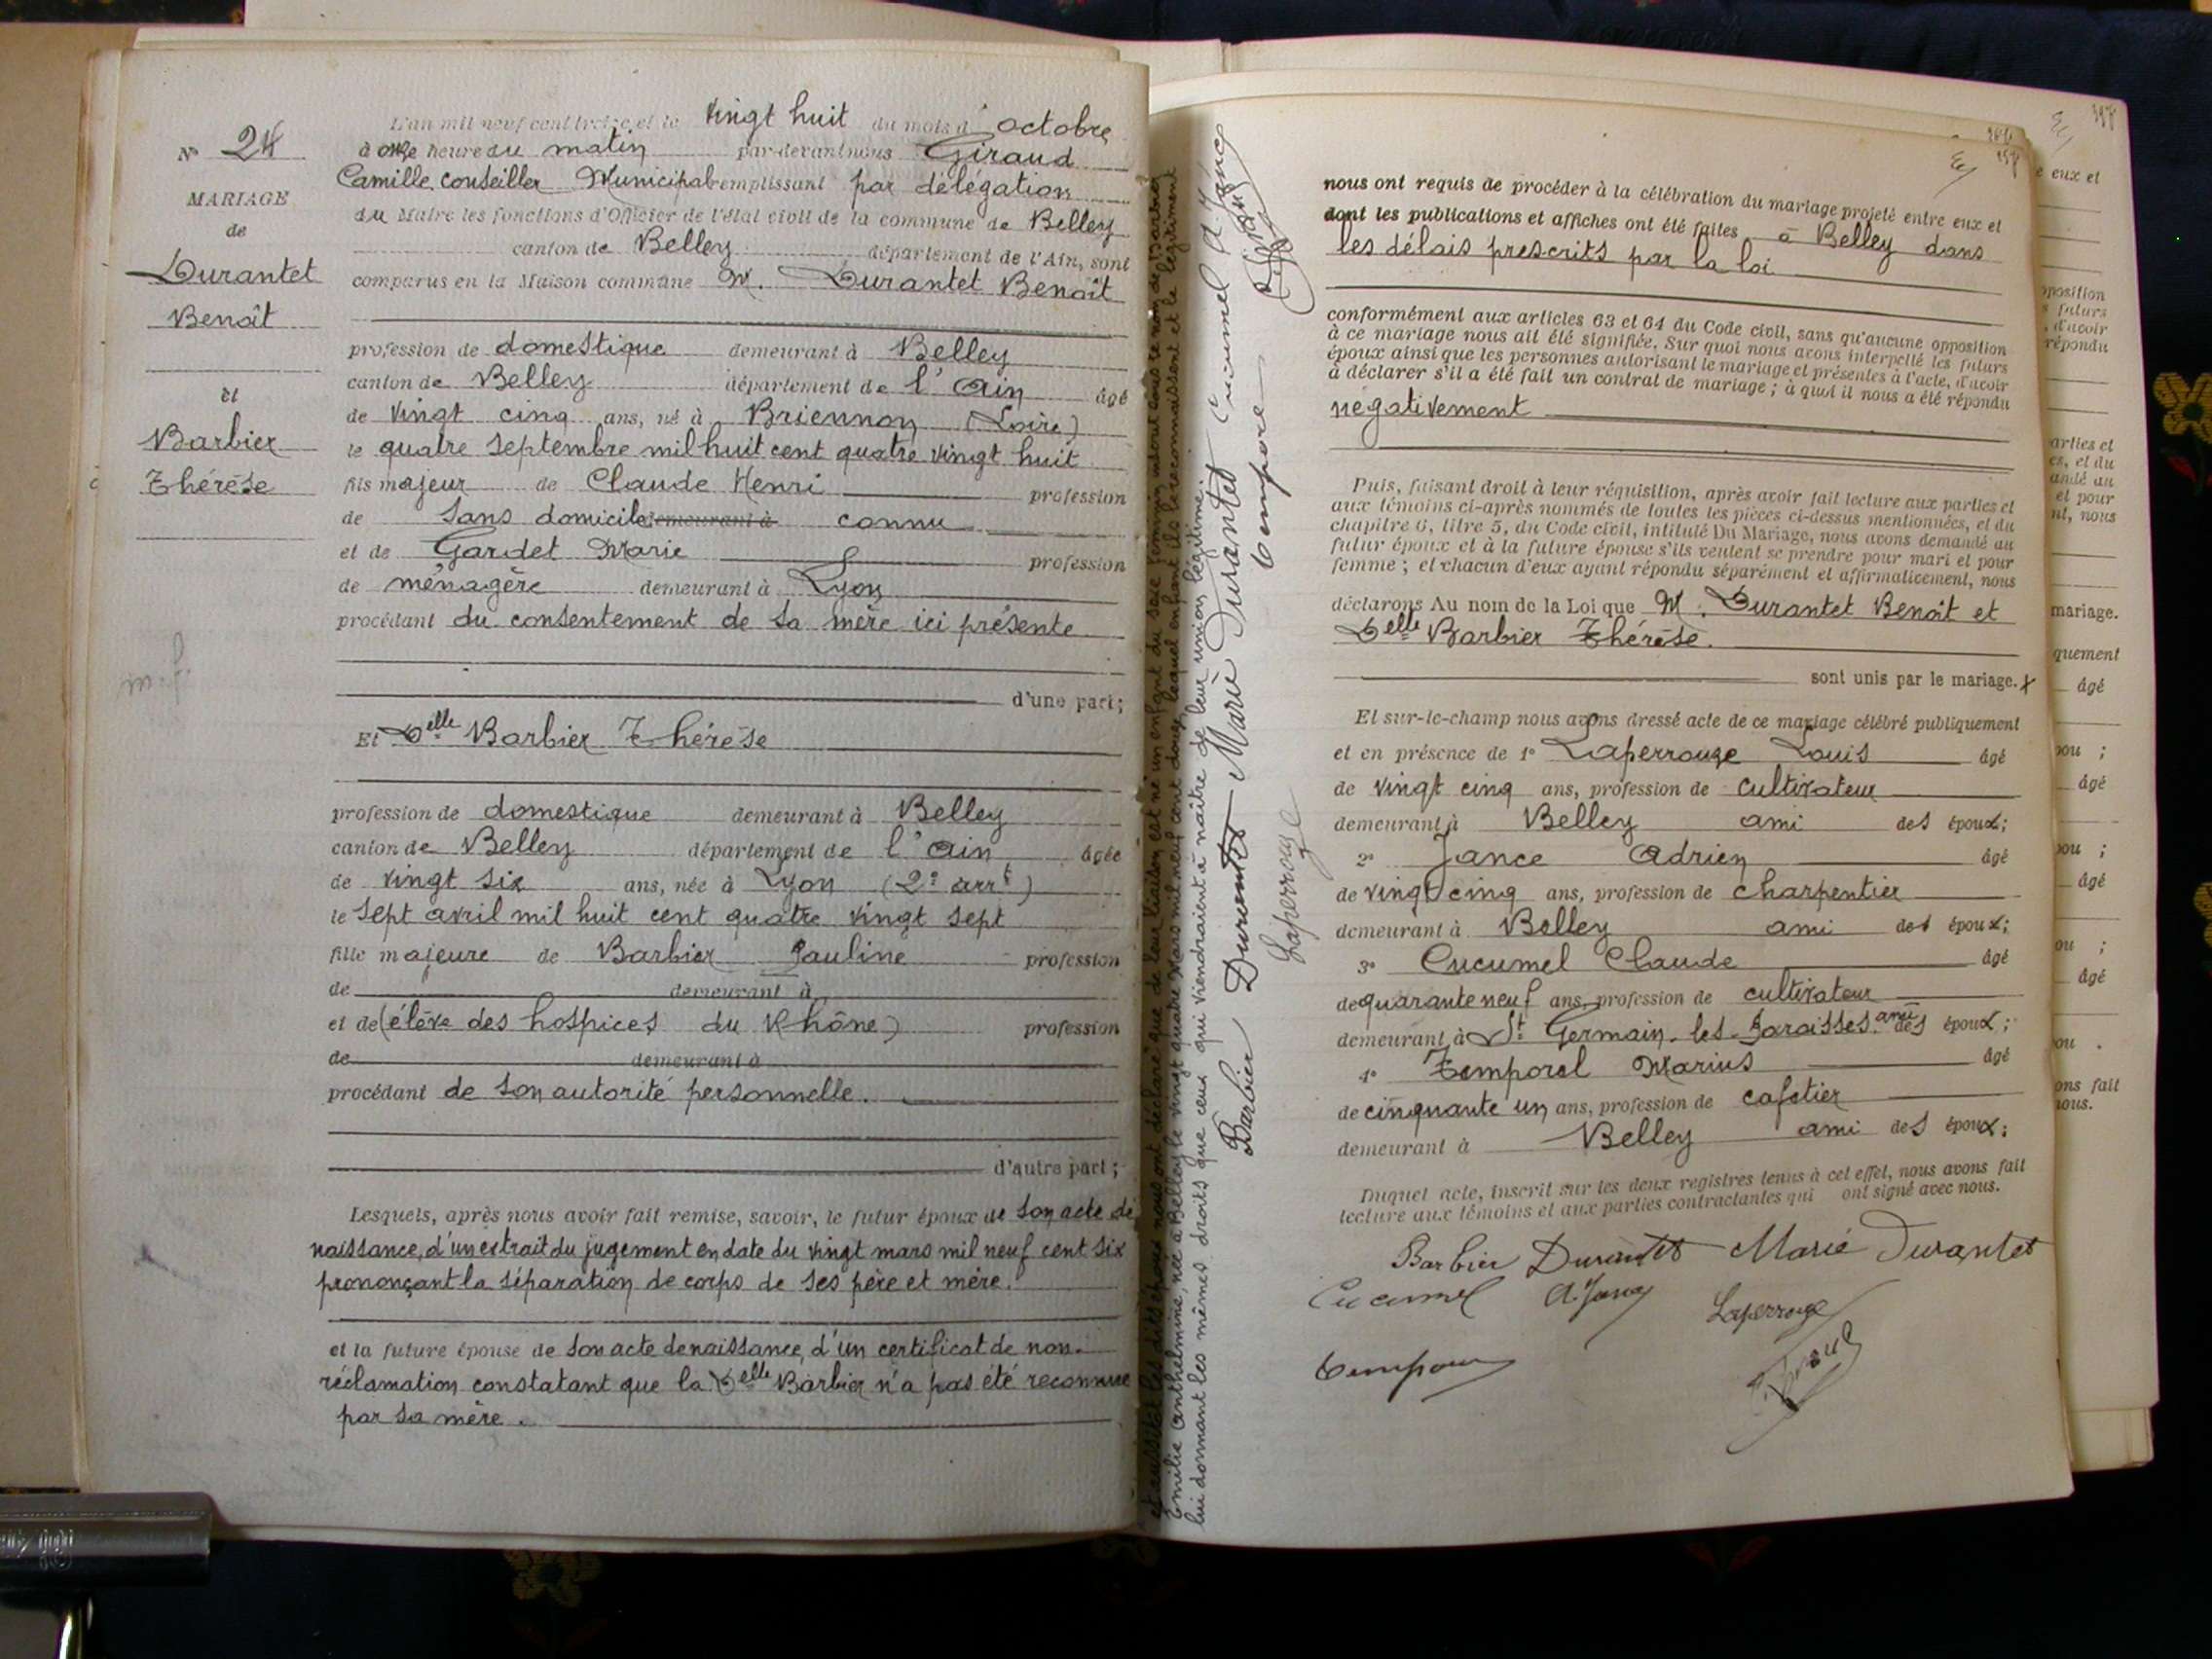 N° 24
MARIAGE
de
Durantet
Benoît
et
Barbier
Thérèse
L'an mil neuf cent treize, et le vingt huit du mois d'octobre
à onze heure du matin par-devant nous Giraud
Camille, conseiller Municipal remplissant par délégation
du Maire les fonctions d'Officier de l'état civil de la commune de Belley
canton de Belley département de l'Ain, sont
comparus en la Maison commune M. Durantet Benoît
profession de domestique demeurant à Belley
canton de Belley département de l'Ain âgé
de vingt cinq ans, né à Briennon (Loire)
le quatre septembre mil huit cent quatre vingt huit
fils majeur de Claude Henri profession
de sans domicile demeurant à connu
et de Gardet Marie profession
de ménagère demeurant à Lyon
procédant du consentement de sa mère ici présente
d'une part;
Et Delle Barbier Thérèse
profession de domestique demeurant à Belley
canton de Belley département de l'Ain âgée
de vingt six ans, née à Lyon (2e arrt)
le sept avril mil huit cent quatre vingt sept
fille majeure de Barbier Pauline profession
de demeurant à
et de (élève des hospices du Rhône) profession
de demeurant à
procédant de son autorité personnelle.
d'autre part;
Lesquels, après nous avoir fait remise, savoir, le futur époux de son acte de
naissance, d'un extrait du jugement en date du vingt mars mil neuf cent six
prononçant la séparation de corps de ses père et mère.
et la future épouse de son acte de naissance, d'un certificat de non-
réclamation constatant que la Delle Barbier n'a pas été reconnue
par sa mère.
et aussitôt les dits époux nous ont déclaré que de leur liaison est né un enfant du sexe féminin inscrit sous le nom de Barbier
Emilie Anthelmine, née à Belley le vingt quatre Mars mil neuf cent douze lequel enfant ils le reconnaissent et le légitiment
lui donnant les mêmes droits que ceux qui viendraient à naître de leur union légitime.
Barbier Durantet Marie Durantet Cucumel A. Jance
Laperrouze Temporel Giraud
nous ont requis de procéder à la célébration du mariage projeté entre eux et
dont les publications et affiches ont été faites à Belley dans
les délais prescrits par la loi
conformément aux articles 63 et 64 du Code civil, sans qu'aucune opposition
à ce mariage nous ait été signifiée. Sur quoi nous avons interpellé les futurs
époux ainsi que les personnes autorisant le mariage et présentes à l'acte, d'avoir
à déclarer s'il a été fait un contrat de mariage; à quoi il nous a été répondu
négativement
Puis, faisant droit à leur réquisition, après avoir fait lecture aux parties et
aux témoins ci-après nommés de toutes les pièces ci-dessus mentionnées, et du
chapitre 6, titre 5, du Code civil, intitulé Du Mariage, nous avons demandé au
futur époux et à la future épouse s'ils veulent se prendre pour mari et pour
femme; et chacun d'eux ayant répondu séparément et affirmativement, nous
déclarons Au nom de la Loi que M. Durantet Benoît et
Delle Barbier Thérèse.
sont unis par le mariage. x
Et sur-le-champ nous avons dressé acte de ce mariage célébré publiquement
et en présence de 1° Laperrouze Louis âgé
de vingt cinq ans, profession de cultivateur
demeurant à Belley ami des époux;
2° Jance Adrien âgé
de vingt cinq ans, profession de charpentier
demeurant à Belley ami des époux;
3° Cucumel Claude âgé
de quarante neuf ans, profession de cultivateur
demeurant à St Germain-les-Paroisses ami des époux;
4° Temporel Marius âgé
de cinquante un ans, profession de cafetier
demeurant à Belley ami des époux;
Duquel acte, inscrit sur les deux registres tenus à cet effet, nous avons fait
lecture aux témoins et aux parties contractantes qui ont signé avec nous.
Barbier Durantet Marie Durantet
Cucumel A. Jance Laperrouze
Giraud
e eux et
pposition
s futurs
, d'avoir
répondu
arties et
es, et du
andé au
et pour
nt, nous
mariage.
quement
âgé
ou ;
âgé
ou ;
âgé
ou ;
âgé
ou .
ons fait
nous.